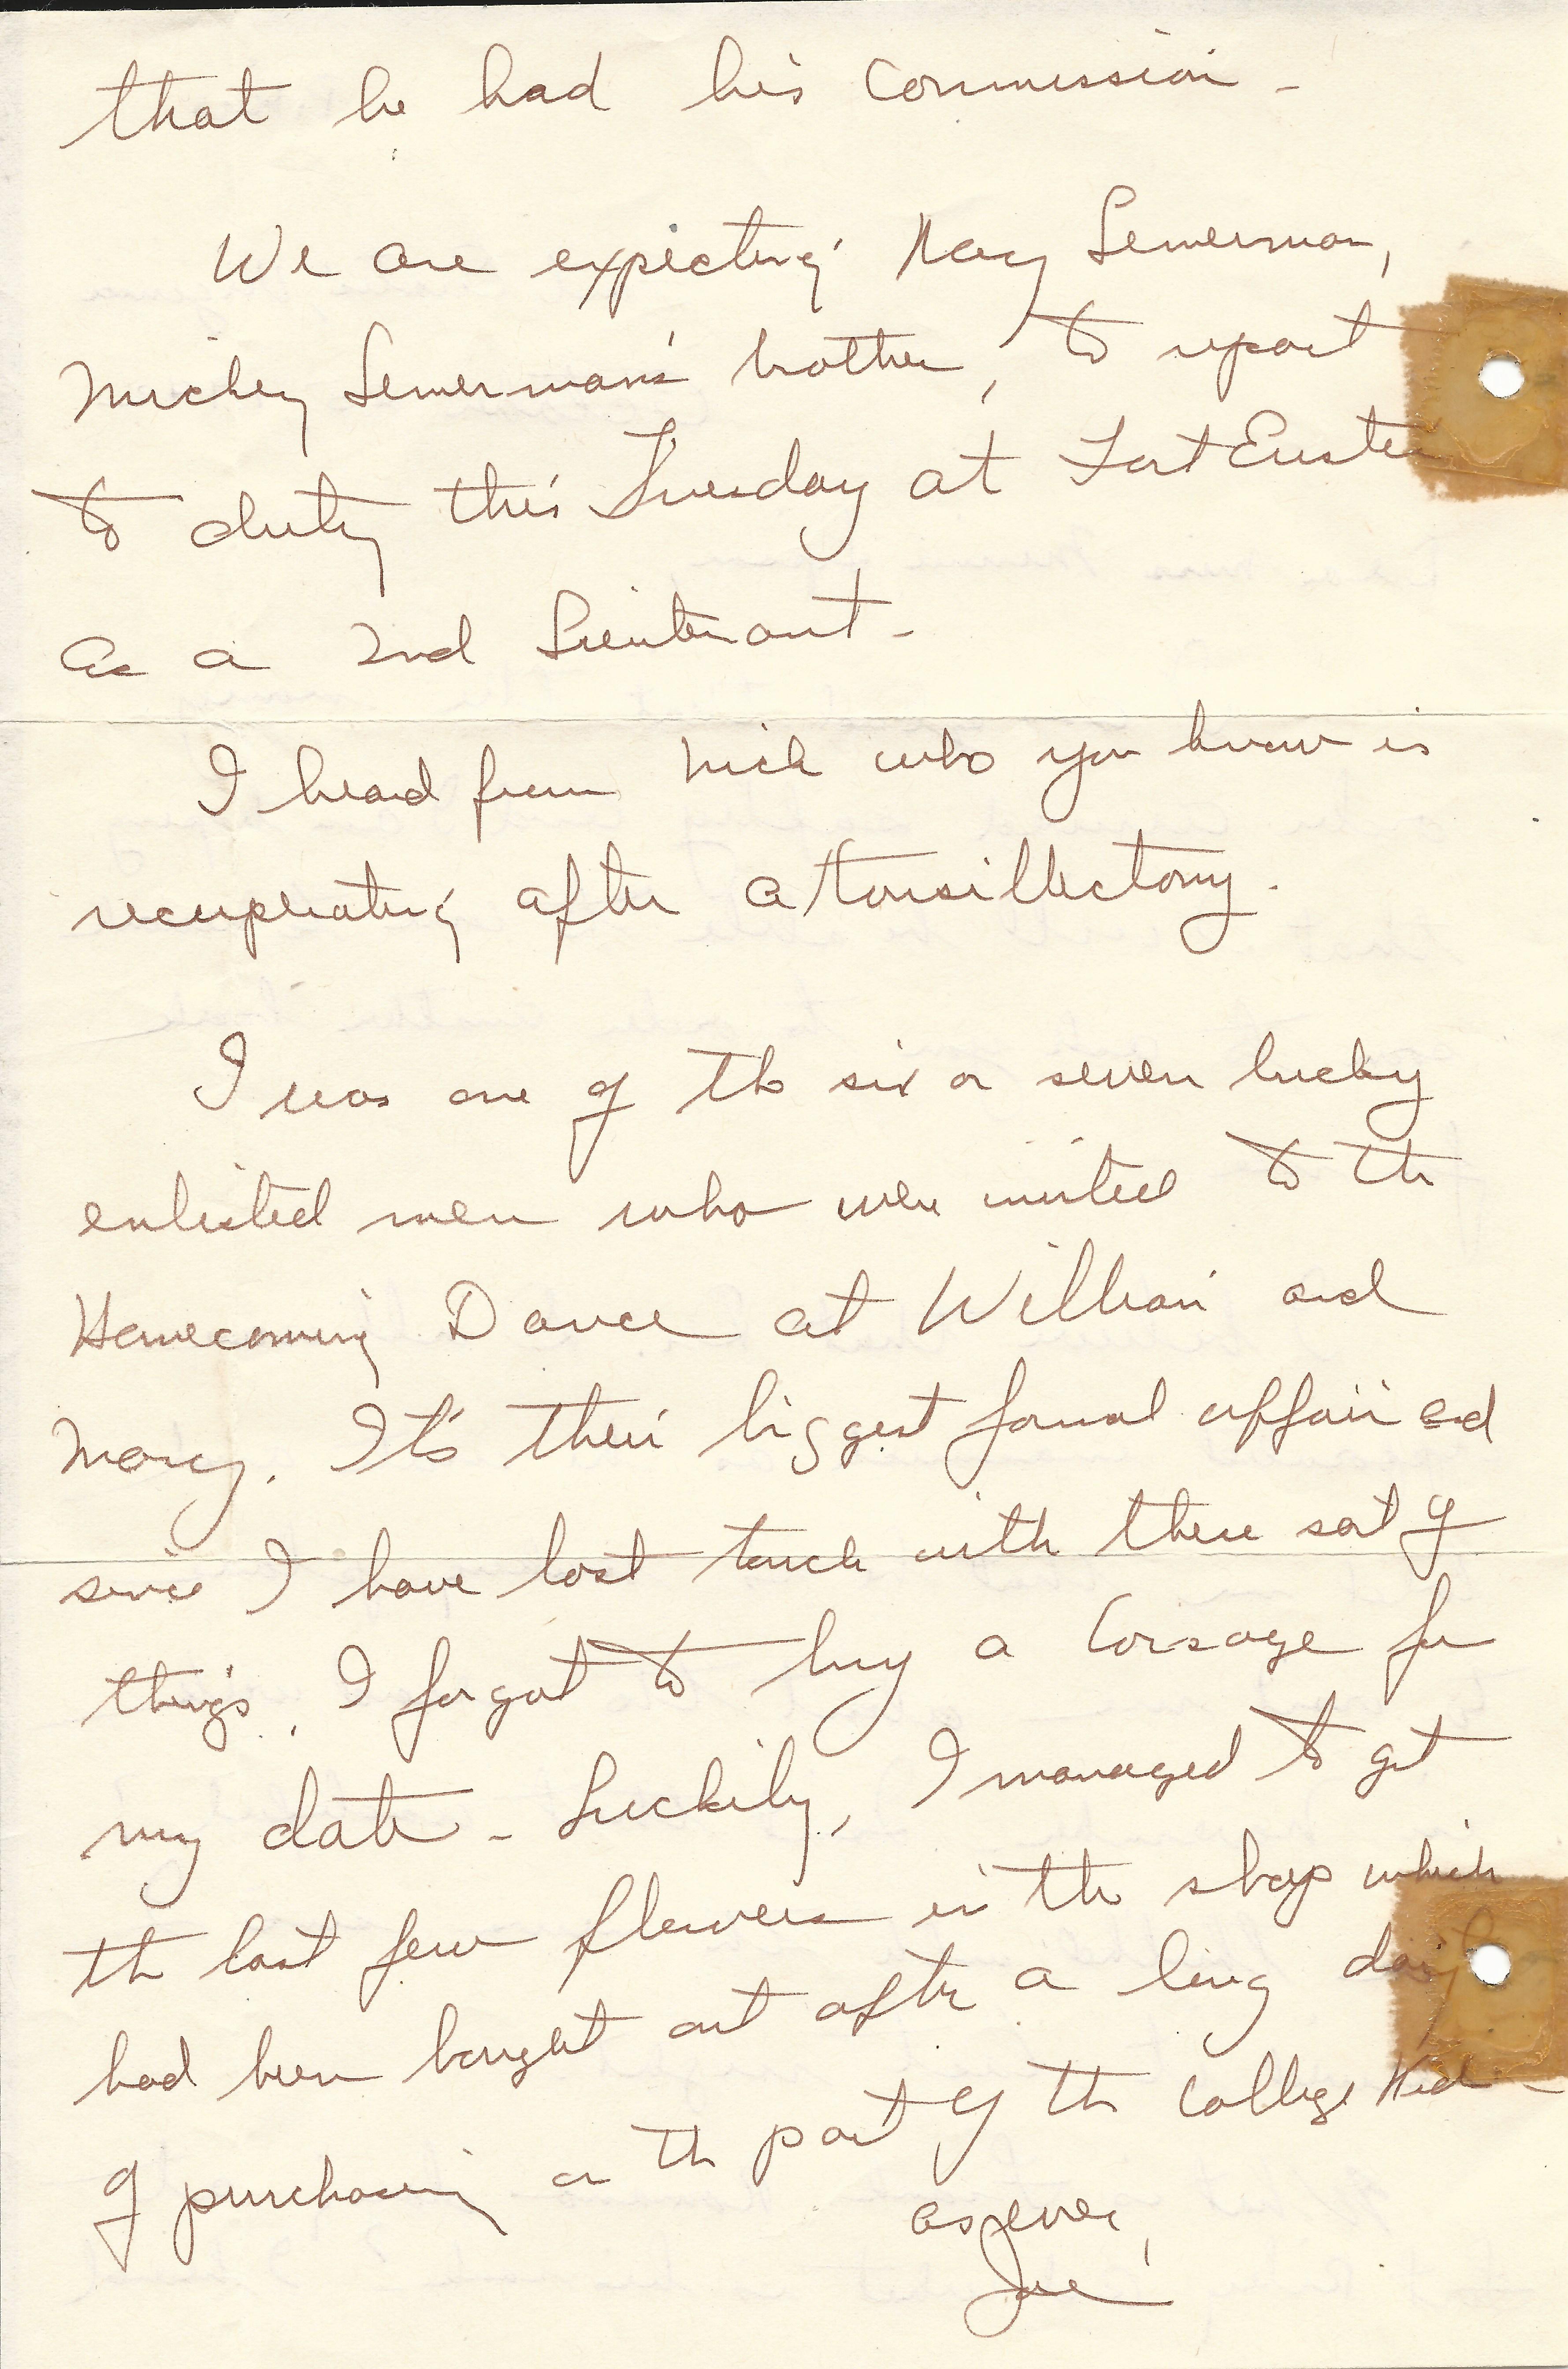 that he had his commission -
We are expecting Lemerman,
Mickey Lemerman's brother, to report
to duty this Tuesday at Fort Eustis
as a 2nd Lieutenant -
I heard from Mick who you know is
recuperating after a tonsillectomy.
I was one of the six or seven lucky
enlisted men who were invited to the
Homecoming Dance at William and
Mary. It's their biggest formal affair and
since I have lost touch with these sort of
things, I forgot to buy a corsage for
my date - Luckily, I managed to get
the last few flowers in the shop which
had been bought out after a long day
of purchasing on the part of the college kids -
as ever,
Joe